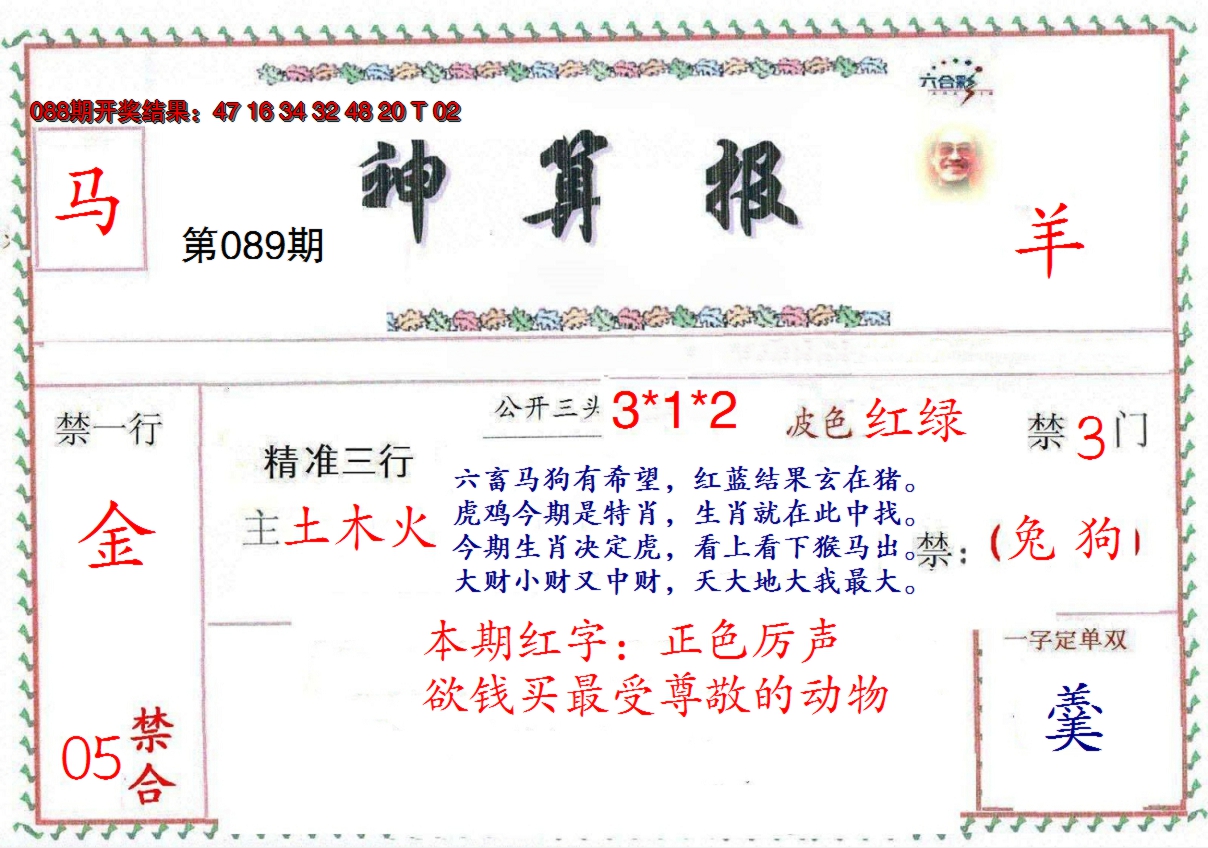 六合彩
088期开奖结果：47 16 34 32 48 20 T 02
神算报
马
第089期
羊
公开三头 3*1*2
波色 红绿
禁3门
禁一行
金
精准三行
主土木火
六畜马狗有希望，红蓝结果玄在猪。
虎鸡今期是特肖，生肖就在此中找。
今期生肖决定虎，看上看下猴马出。
大财小财又中财，天大地大我最大。
禁：（兔 狗）
本期红字：正色厉声
欲钱买最受尊敬的动物
一字定单双
羹
05禁合